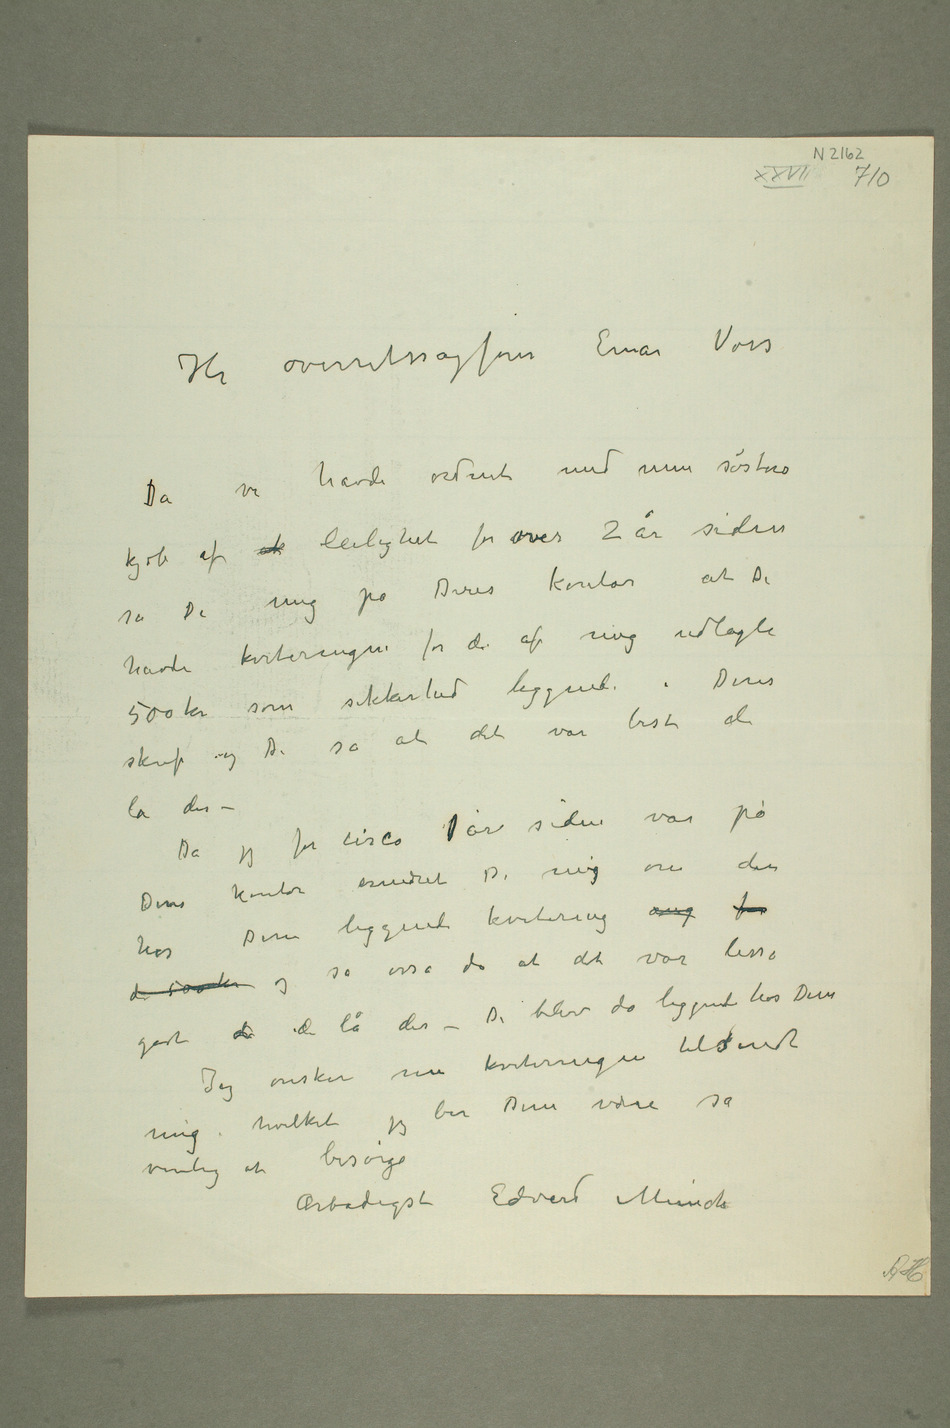 N 2162
XXVII 710
Hr overretssagfører Einar Voss
Da vi havde ordnet med min søsters
kjøb af et leilighet for over 2 år siden
sa De mig på Deres kontor at De
havde kvitteringen for de af mig udlagte
500 kr som sikkerhed liggende i Deres
skuf og De sa at det var best de
lå der –
Da jeg for circa 1 år siden var på
Deres kontor erindret De mig om den
hos Dem liggende kvitering ang for
de 500 kr og sa også da at det var lisså
godt de de lå der – De blev da liggende hos Dem
Jeg ønsker nu kviteringen tilsendt
mig hvilket jeg ber Dem være så
venlig at besørge
Ærbødigst Edvard Munch